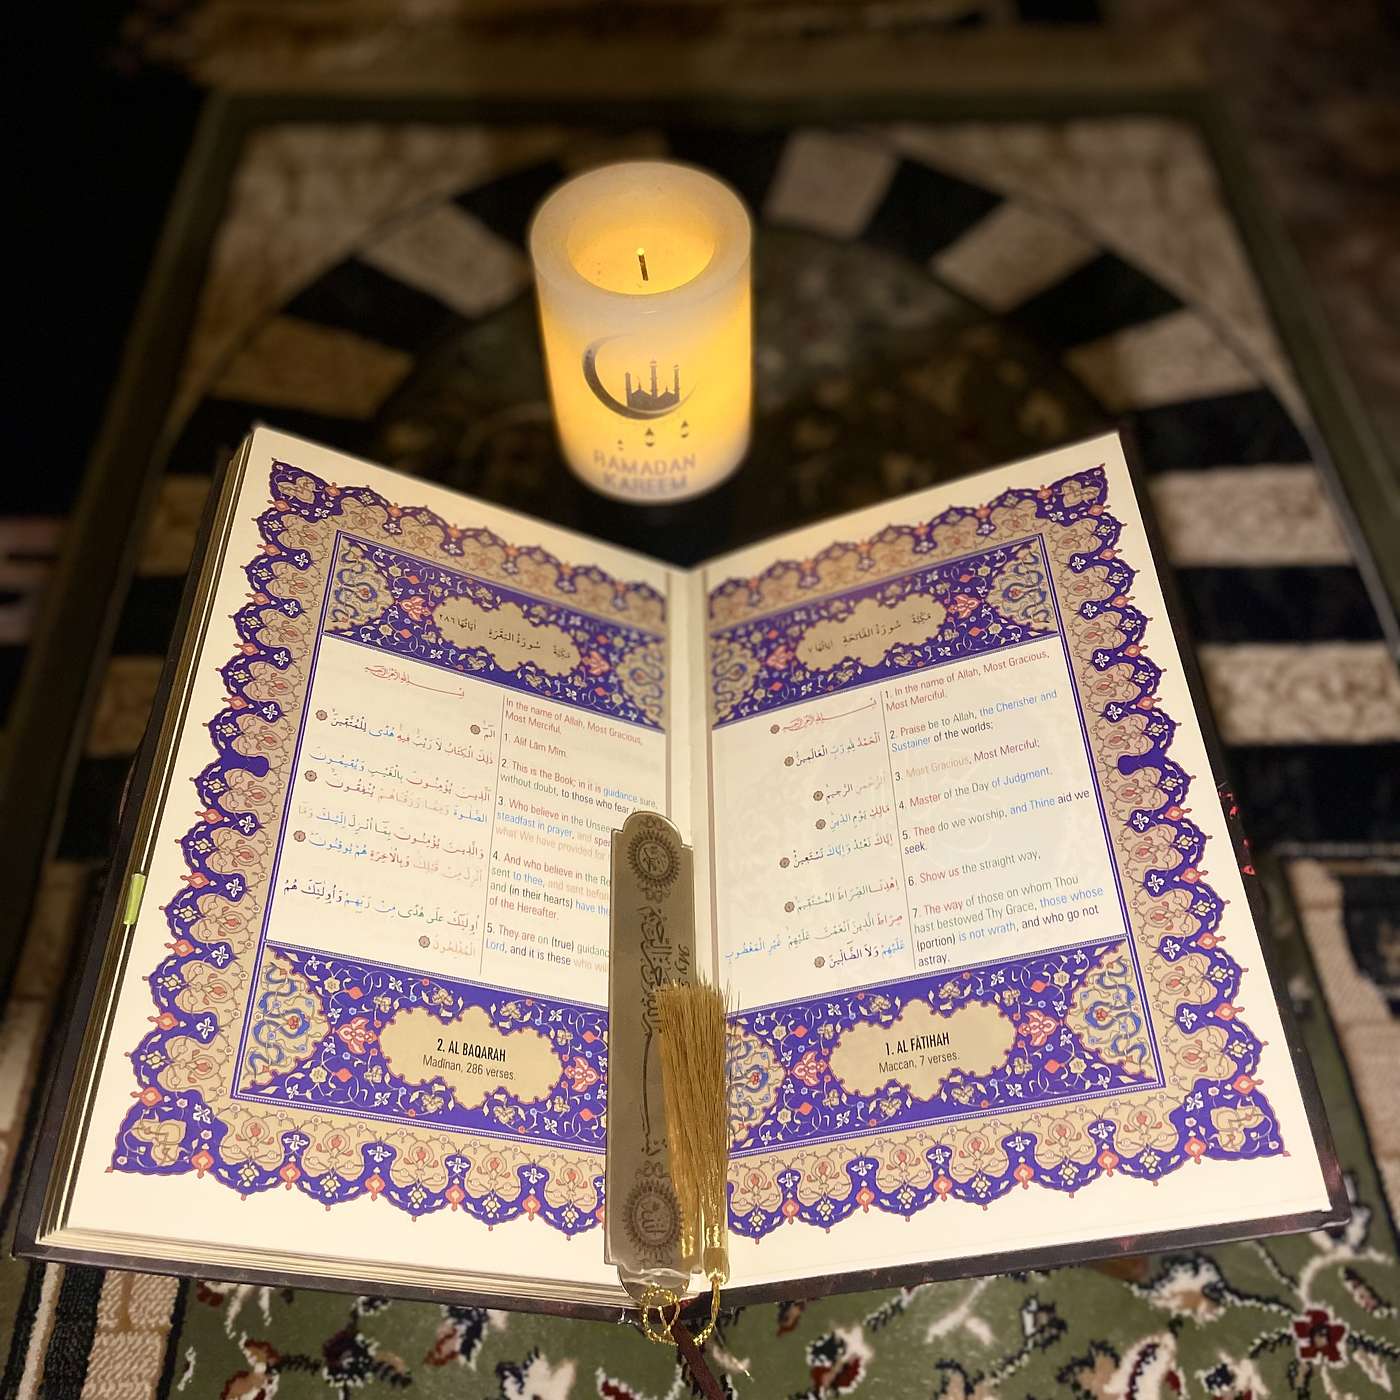 RAMADAN
KAREEM
مكية سورة الفاتحة آياتها ٧
1. In the name of Allah, Most Gracious,
Most Merciful.
2. Praise be to Allah, the Cherisher and
Sustainer of the worlds;
3. Most Gracious, Most Merciful;
4. Master of the Day of Judgment,
5. Thee do we worship, and Thine aid we
seek.
6. Show us the straight way,
7. The way of those on whom Thou
hast bestowed Thy Grace, those whose
(portion) is not wrath, and who go not
astray.
بِسْمِ اللَّهِ الرَّحْمَٰنِ الرَّحِيمِ
اَلْحَمْدُ لِلّٰهِ رَبِّ الْعَالَمِينَ
اَلرَّحْمٰنِ الرَّحِيمِ
مَالِكِ يَوْمِ الدِّينِ
إِيَّاكَ نَعْبُدُ وَإِيَّاكَ نَسْتَعِينُ
اِهْدِنَا الصِّرَاطَ الْمُسْتَقِيمَ
صِرَاطَ الَّذِينَ أَنْعَمْتَ عَلَيْهِمْ غَيْرِ الْمَغْضُوبِ
عَلَيْهِمْ وَلَا الضَّالِّينَ
1. AL FÂTIHAH
Maccan, 7 verses.
سورة البقرة آياتها ٢٨٦
In the name of Allah, Most Gracious,
Most Merciful.
1. Alif Lâm Mîm.
2. This is the Book; in it is guidance sure,
without doubt, to those who fear
3. Who believe in the Unseen
steadfast in prayer, and
what We have provided for
4. And who believe in the
sent to thee, and sent before
and (in their hearts) have
of the Hereafter.
5. They are on (true) guidance
Lord, and it is these who
بِسْمِ اللَّهِ الرَّحْمَٰنِ الرَّحِيمِ
الٓمٓ
ذٰلِكَ الْكِتَابُ لَا رَيْبَ فِيهِ هُدًى لِلْمُتَّقِينَ
اَلَّذِينَ يُؤْمِنُونَ بِالْغَيْبِ وَيُقِيمُونَ
الصَّلٰوةَ وَمِمَّا رَزَقْنَاهُمْ يُنْفِقُونَ
وَالَّذِينَ يُؤْمِنُونَ بِمَا أُنْزِلَ إِلَيْكَ وَمَا
أُنْزِلَ مِنْ قَبْلِكَ وَبِالْآخِرَةِ هُمْ يُوقِنُونَ
أُولٰئِكَ عَلَى هُدًى مِنْ رَبِّهِمْ وَأُولٰئِكَ هُمُ
الْمُفْلِحُونَ
2. AL BAQARAH
Madînan, 286 verses.